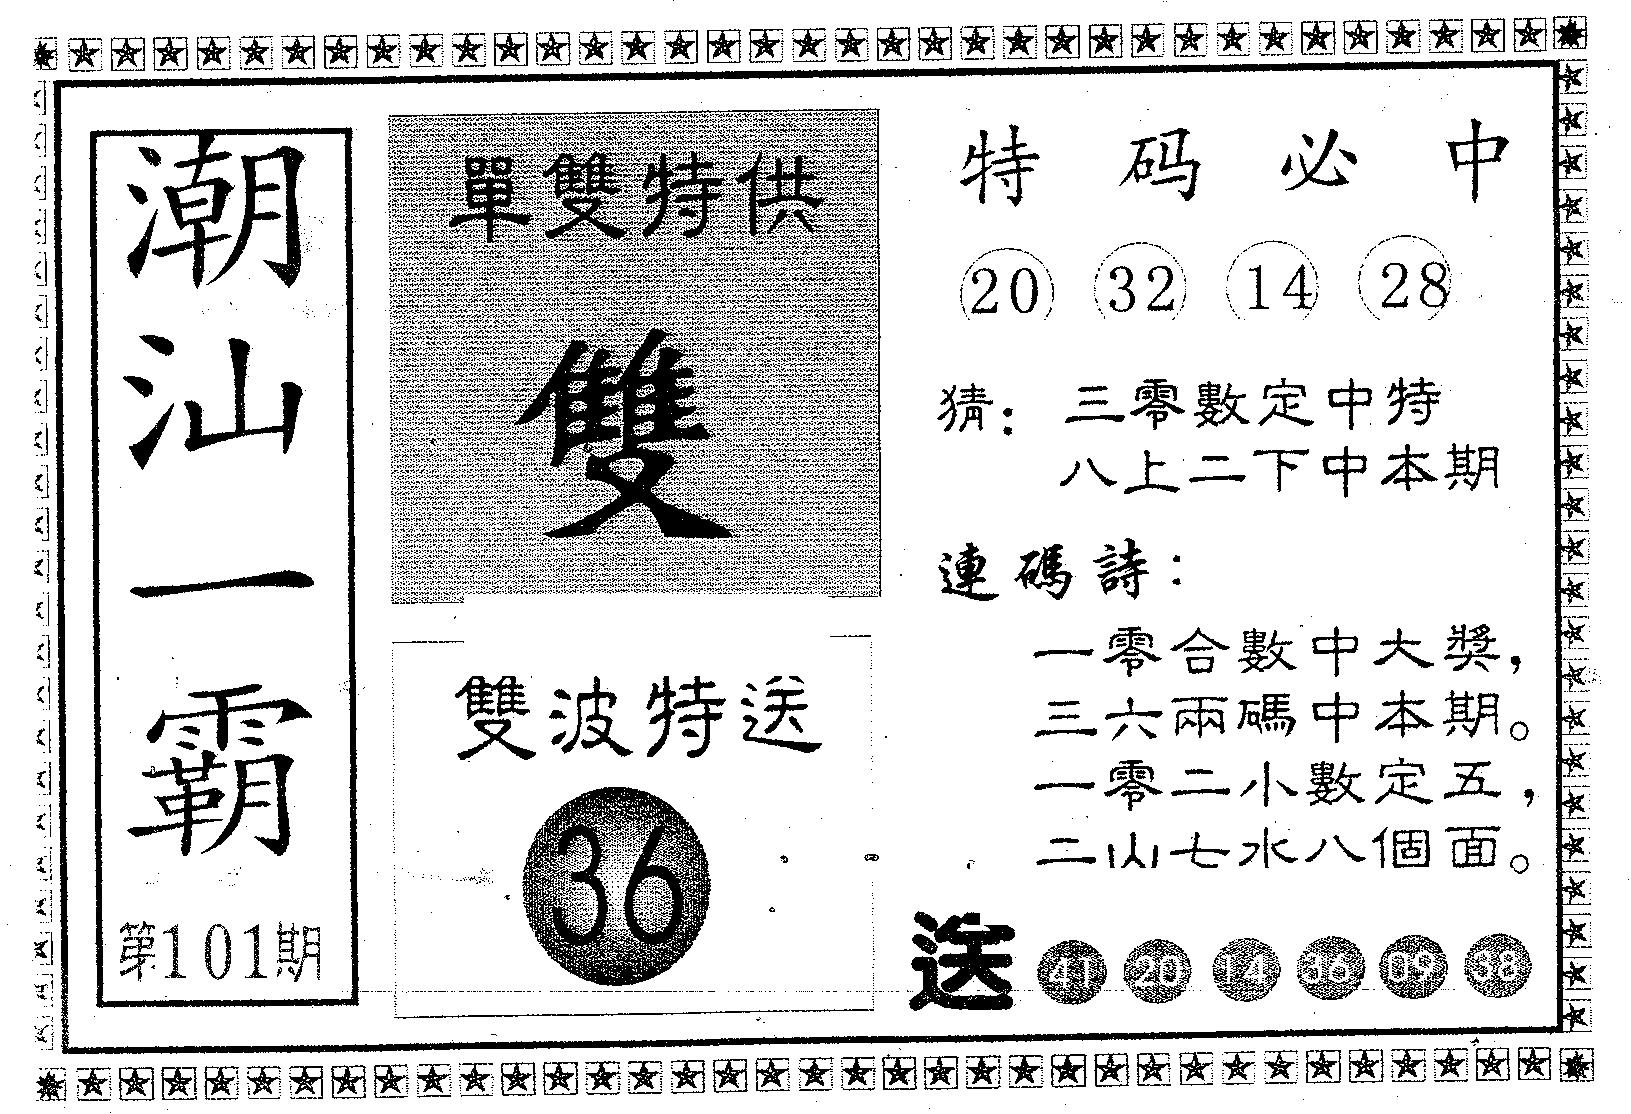 潮汕一霸
第101期
單雙特供
雙
雙波特送
36
特码必中
20 32 14 28
猜：三零數定中特
八上二下中本期
連碼詩：
一零合數中大獎，
三六兩碼中本期。
一零二小數定五，
二山七水八個面。
送 41 20 14 36 09 38